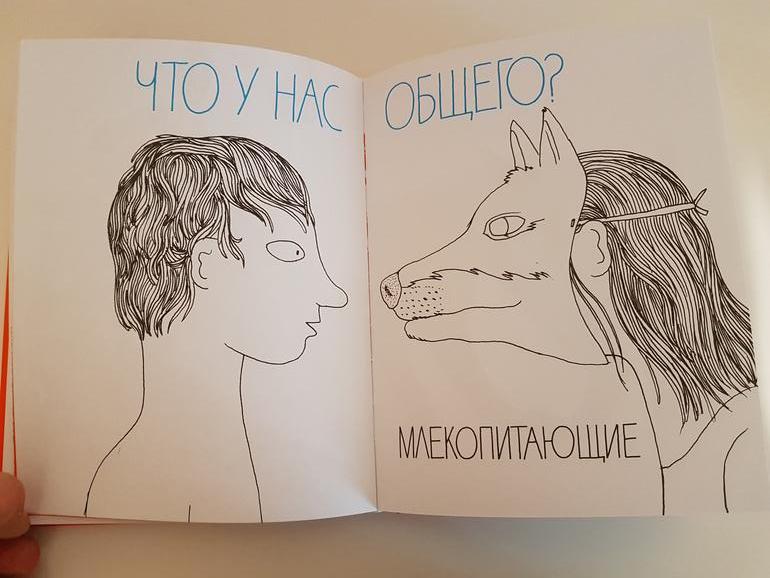 ЧТО У НАС ОБЩЕГО?
МЛЕКОПИТАЮЩИЕ